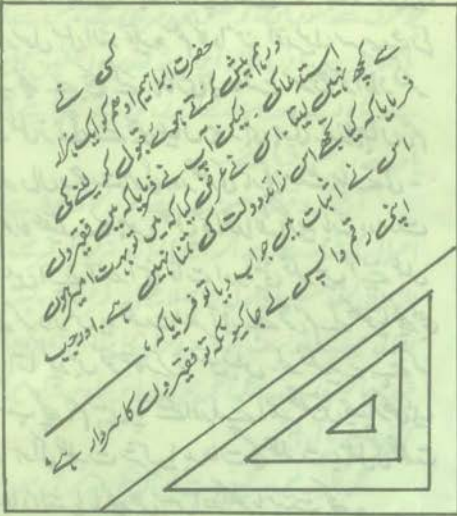 کسی نے
حضرت ابراہیم ادھم کو ایک ہزار
درہم پیش کرتے ہوئے قبول کر لینے کی
استدعا کی ۔ لیکن آپ نے فرمایا کہ میں فقیروں
سے کچھ نہیں لیتا ۔ اس نے عرض کیا کہ میں تو بہت امیر ہوں
فرمایا کہ کیا تجھے اس زائد دولت کی تمنا نہیں ہے ۔ اور جب
اس نے اثبات میں جواب دیا تو فرمایا کہ ،
اپنی رقم واپس لے جا کیونکہ تو فقیروں کا سردار ہے ،